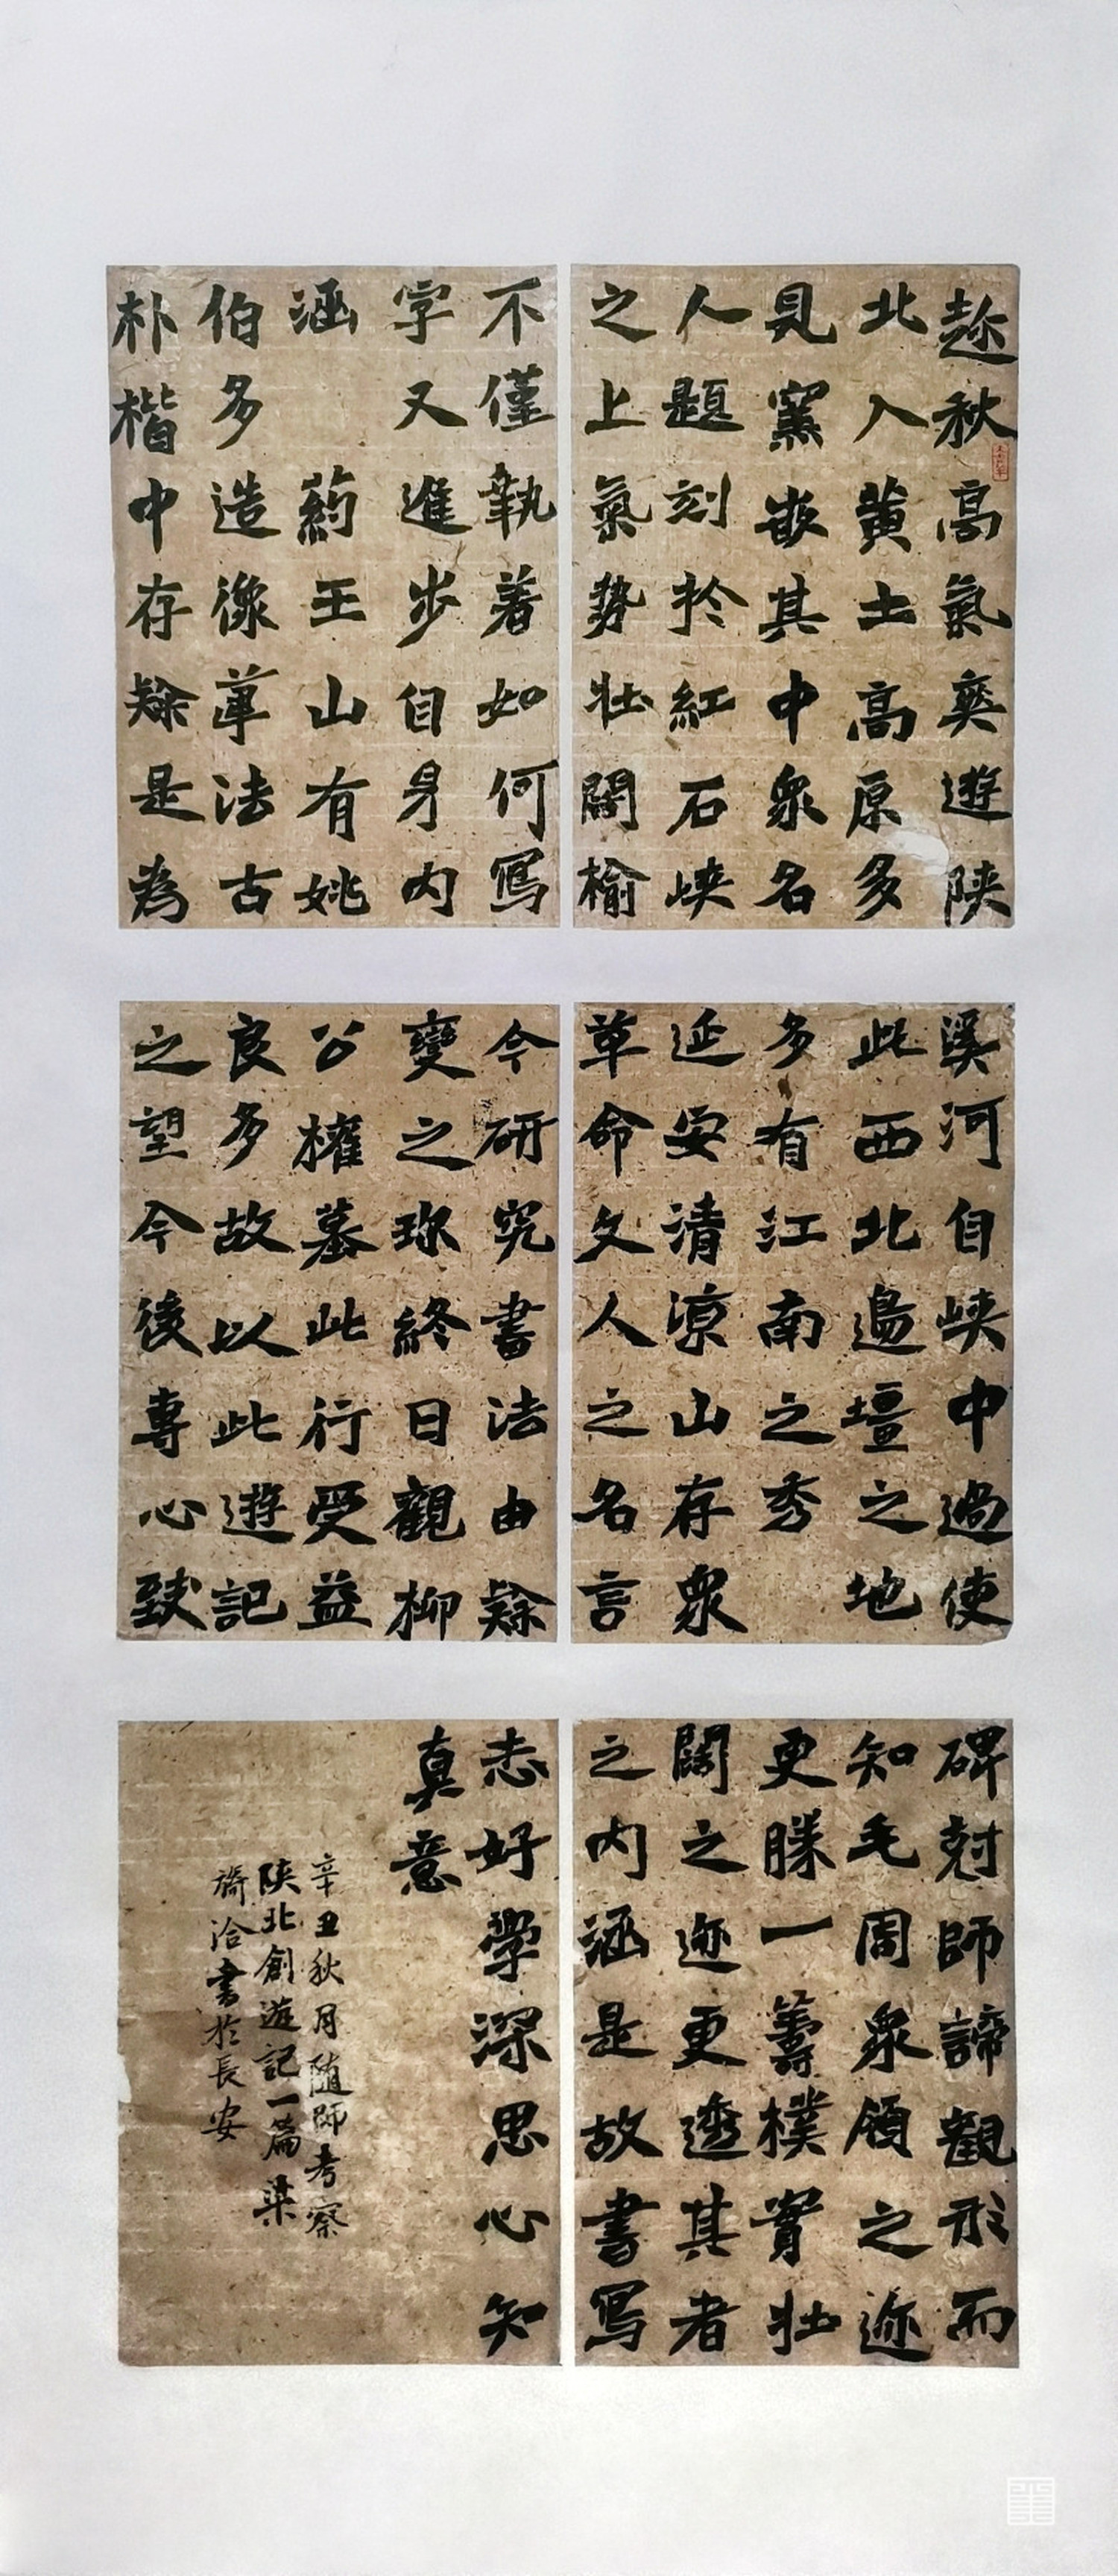 趂秋高氣爽遊陝
北入黃土高原多
見窯嵌其中眾名
人題刻於紅石峽
之上氣勢壯闊榆
溪河自峽中過使
此西北邊壃之地
多有江南之秀
延安清涼山存眾
革命文人之名言
碑尅師諦觀形而
知毛周眾領之迹
更勝一籌樸實壯
闊之迹更透其者
之內涵是故書寫
不僅執著如何寫
字又進步自身內
涵 葯王山有姚
伯多造像章法古
朴楷中存隸是為
今研究書法由隸
變之珎終日觀柳
公權墓此行受益
良多故以此遊記
之望今後專心致
志好學深思心知
真意
辛丑秋月随師考察
陝北創遊記一篇梁
旖洽書於長安